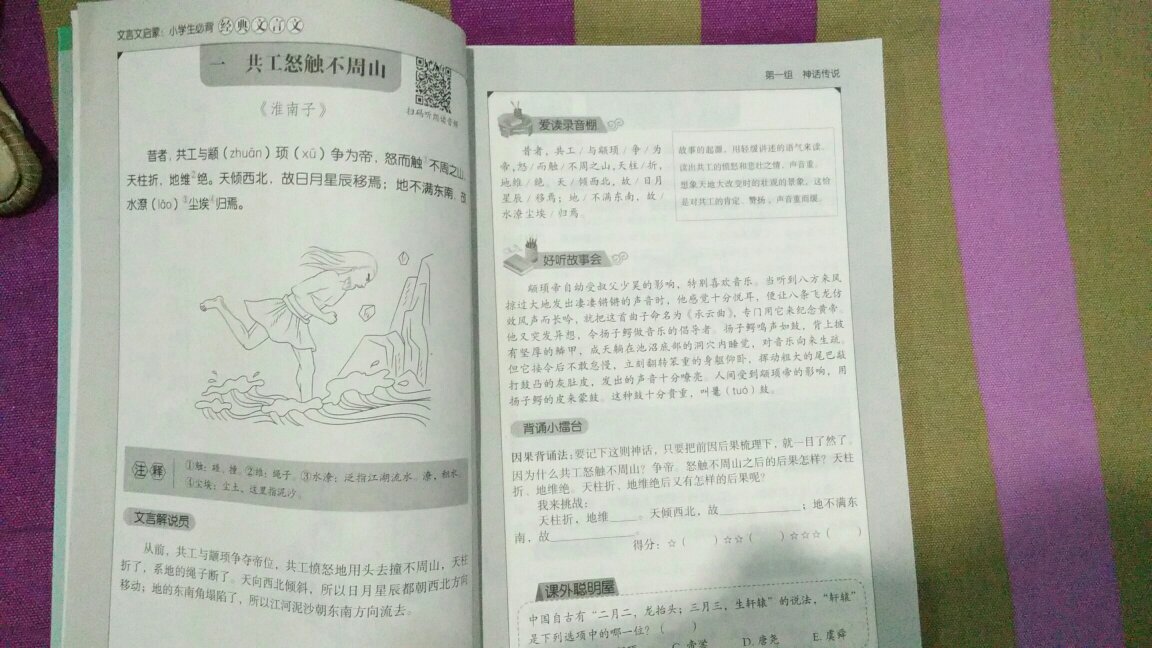 文言文启蒙：小学生必背经典文言文
一 共工怒触不周山
扫码听朗读音频
《淮南子》
昔者，共工与颛（zhuān）顼（xū）争为帝，怒而触①不周之山，
天柱折，地维②绝。天倾西北，故日月星辰移焉；地不满东南，故
水潦（lǎo）③尘埃④归焉。
注释
①触：碰、撞。②维：绳子。③水潦：泛指江湖流水。潦，积水。
④尘埃：尘土，这里指泥沙。
文言解说员
从前，共工与颛顼争夺帝位，共工愤怒地用头去撞不周山，天柱
折了，系地的绳子断了。天向西北倾斜，所以日月星辰都朝西北方向
移动；地的东南角塌陷了，所以江河泥沙朝东南方向流去。
第一组 神话传说
爱读录音棚
昔者，共工/与颛顼/争/为
帝，怒/而触/不周之山，天柱/折，
地维/绝。天/倾西北，故/日月
星辰/移焉；地/不满东南，故/
水潦尘埃/归焉。
故事的起源，用轻缓讲述的语气来读。
读出共工的愤怒和悲壮之情，声音重。
想象天地大改变时的壮观的景象，这恰
是对共工的肯定、赞扬，声音重而缓。
好听故事会
颛顼帝自幼受叔父少昊的影响，特别喜欢音乐。当听到八方来风
掠过大地发出凄凄锵锵的声音时，他感觉十分悦耳，便让八条飞龙仿
效风声而长吟，就把这首曲子命名为《承云曲》，专门用它来纪念黄帝。
他又突发异想，令扬子鳄做音乐的倡导者。扬子鳄鸣声如鼓，背上披
有坚厚的鳞甲，成天躺在池沼底部的洞穴内睡觉，对音乐向来生疏。
但它接令后不敢怠慢，立刻翻转笨重的身躯仰卧，挥动粗大的尾巴敲
打鼓凸的灰肚皮，发出的声音十分嘹亮。人间受到颛顼帝的影响，用
扬子鳄的皮来蒙鼓。这种鼓十分贵重，叫鼍（tuó）鼓。
背诵小擂台
因果背诵法：要记下这则神话，只要把前因后果梳理下，就一目了然了。
因为什么共工怒触不周山？争帝。怒触不周山之后的后果怎样？天柱
折、地维绝。天柱折、地维绝后又有怎样的后果呢？
我来挑战：
天柱折，地维____。天倾西北，故____________；地不满东
南，故____________。
得分：☆（ ）☆☆（ ）☆☆☆（ ）
课外聪明屋
中国自古有“二月二，龙抬头；三月三，生轩辕”的说法，“轩辕”
是下列选项中的哪一位？（ ）
C.帝喾 D.唐尧 E.虞舜